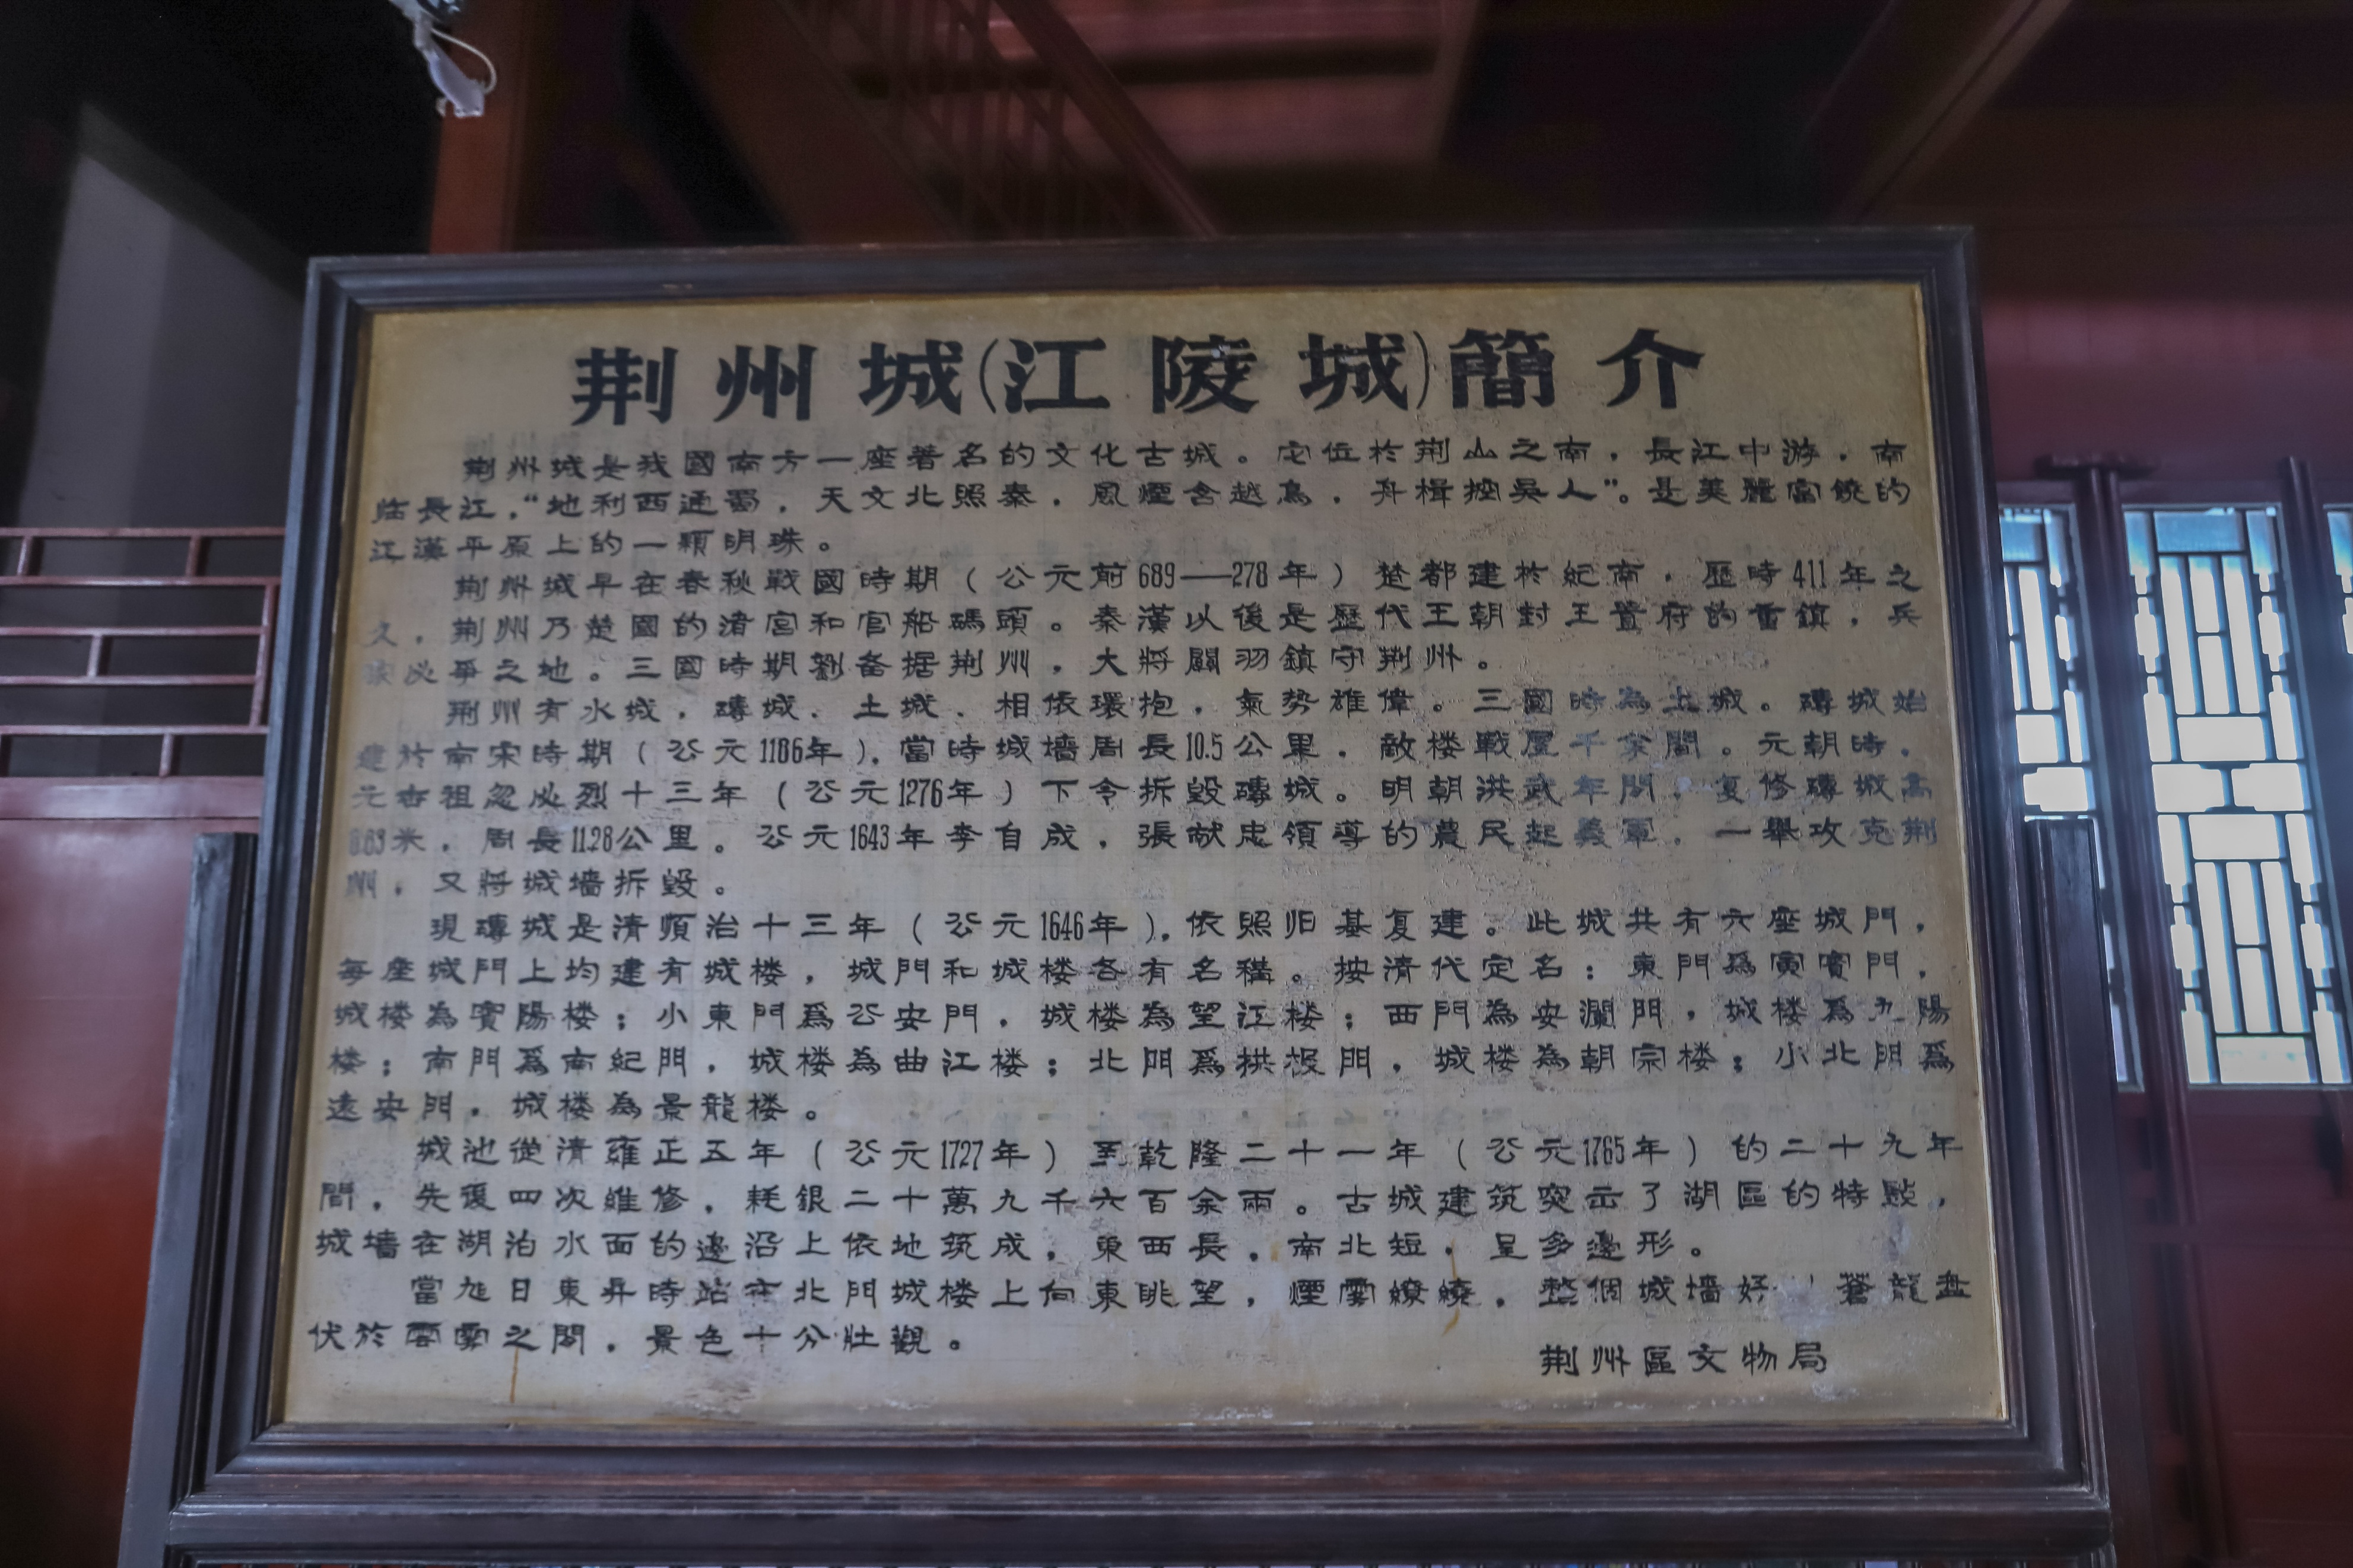 荆州城(江陵城)簡介
荆州城是我國南方一座著名的文化古城。它位於荆山之南，長江中游，南
临長江，“地利西通蜀，天文北照秦，風煙含越鳥，舟楫控吳人”。是美麗富饒的
江漢平原上的一顆明珠。
荆州城早在春秋戰國時期（公元前689——278年）楚都建於紀南，歷時411年之
久，荆州乃楚國的渚宫和官船碼頭。秦漢以後是歷代王朝封王置府的重鎮，兵
家必爭之地。三國時期劉备据荆州，大將關羽鎮守荆州。
荆州有水城、磚城、土城、相依環抱，氣势雄偉。三國時為土城。磚城始
建於南宋時期（公元1186年），當時城墻周長10.5公里，敵楼戰屋千余間。元朝時，
元世祖忽必烈十三年（公元1276年）下令拆毁磚城。明朝洪武年間，复修磚城高
8.83米，周長11.28公里。公元1643年李自成，張献忠領導的農民起義軍，一舉攻克荆
州，又將城墻拆毁。
現磚城是清順治十三年（公元1646年），依照旧基复建。此城共有六座城門，
每座城門上均建有城楼，城門和城楼各有名稱。按清代定名：東門爲寅賓門，
城楼為賓陽楼；小東門爲公安門，城楼為望江楼；西門為安瀾門，城楼爲九陽
楼；南門爲南紀門，城楼為曲江楼；北門爲拱极門，城楼為朝宗楼；小北門爲
远安門，城楼為景龍楼。
城池從清雍正五年（公元1727年）至乾隆二十一年（公元1765年）的二十九年
間，先後四次維修，耗銀二十萬九千六百余兩。古城建筑突出了湖區的特點，
城墙在湖泊水面的邊沿上依地筑成，東西長，南北短，呈多邊形。
當旭日東昇時站在北門城楼上向東眺望，煙雲繚繞，整個城墙好 蒼龍盘
伏於雲霧之間，景色十分壯觀。
荆州區文物局